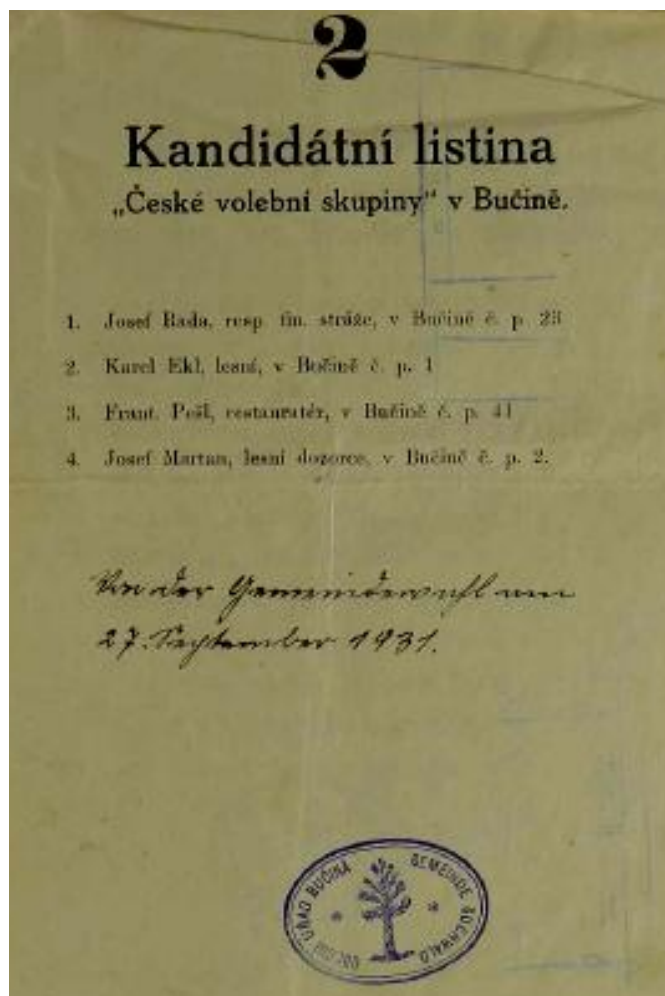 2
Kandidátní listina
„České volební skupiny“ v Bučině.
1. Josef Rada, resp. fin. stráže, v Bučině č. p. 23
2. Karel Ekl, lesní, v Bučině č. p. 1
3. Frant. Pešl, restauratér, v Bučině č. p. 41
4. Josef Martan, lesní dozorce, v Bučině č. p. 2.
Von der Gemeindewahl am
27. September 1931.
OBECNÍ ÚŘAD BUČINA GEMEINDE BUCHWALD